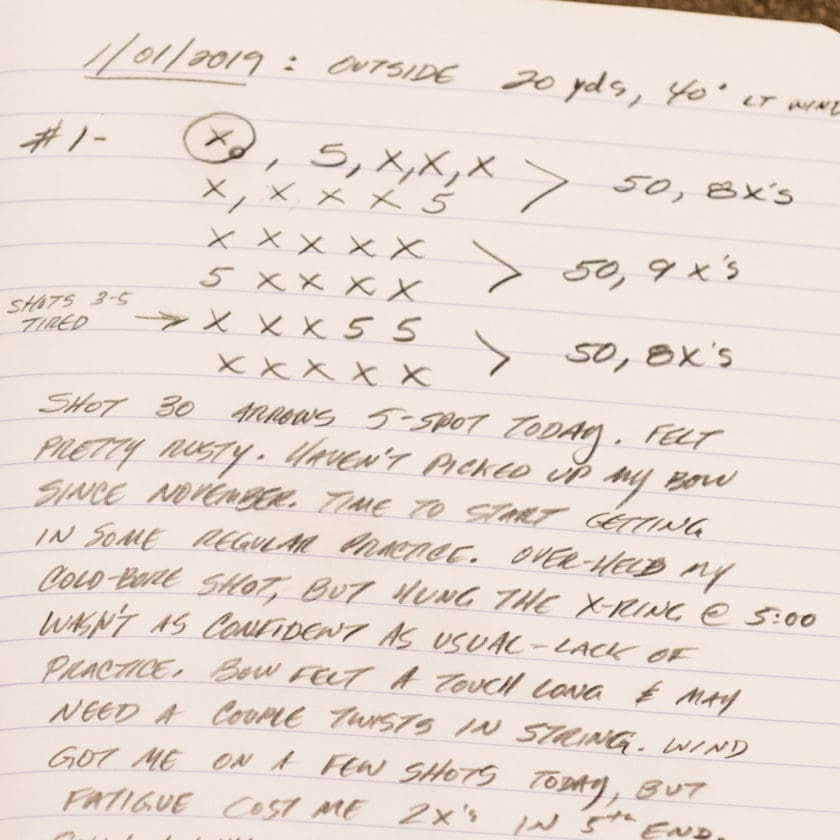 1/01/2019 : OUTSIDE 20 yds, 40° LT WIND
#1- X, 5, X, X, X
X, X X X 5 > 50, 8X's
X X X X X
5 X X X X > 50, 9 X's
SHOTS 3-5 TIRED → X X X 5 5
X X X X X > 50, 8X's
SHOT 30 ARROWS 5-SPOT TODAY. FELT
PRETTY RUSTY. HAVEN'T PICKED UP MY BOW
SINCE NOVEMBER. TIME TO START GETTING
IN SOME REGULAR PRACTICE. OVER-HELD MY
COLD-BORE SHOT, BUT HUNG THE X-RING @ 5:00
WASN'T AS CONFIDENT AS USUAL - LACK OF
PRACTICE. BOW FELT A TOUCH LONG & MAY
NEED A COUPLE TWISTS IN STRING. WIND
GOT ME ON A FEW SHOTS TODAY, BUT
FATIGUE COST ME 2X's IN 5th END.